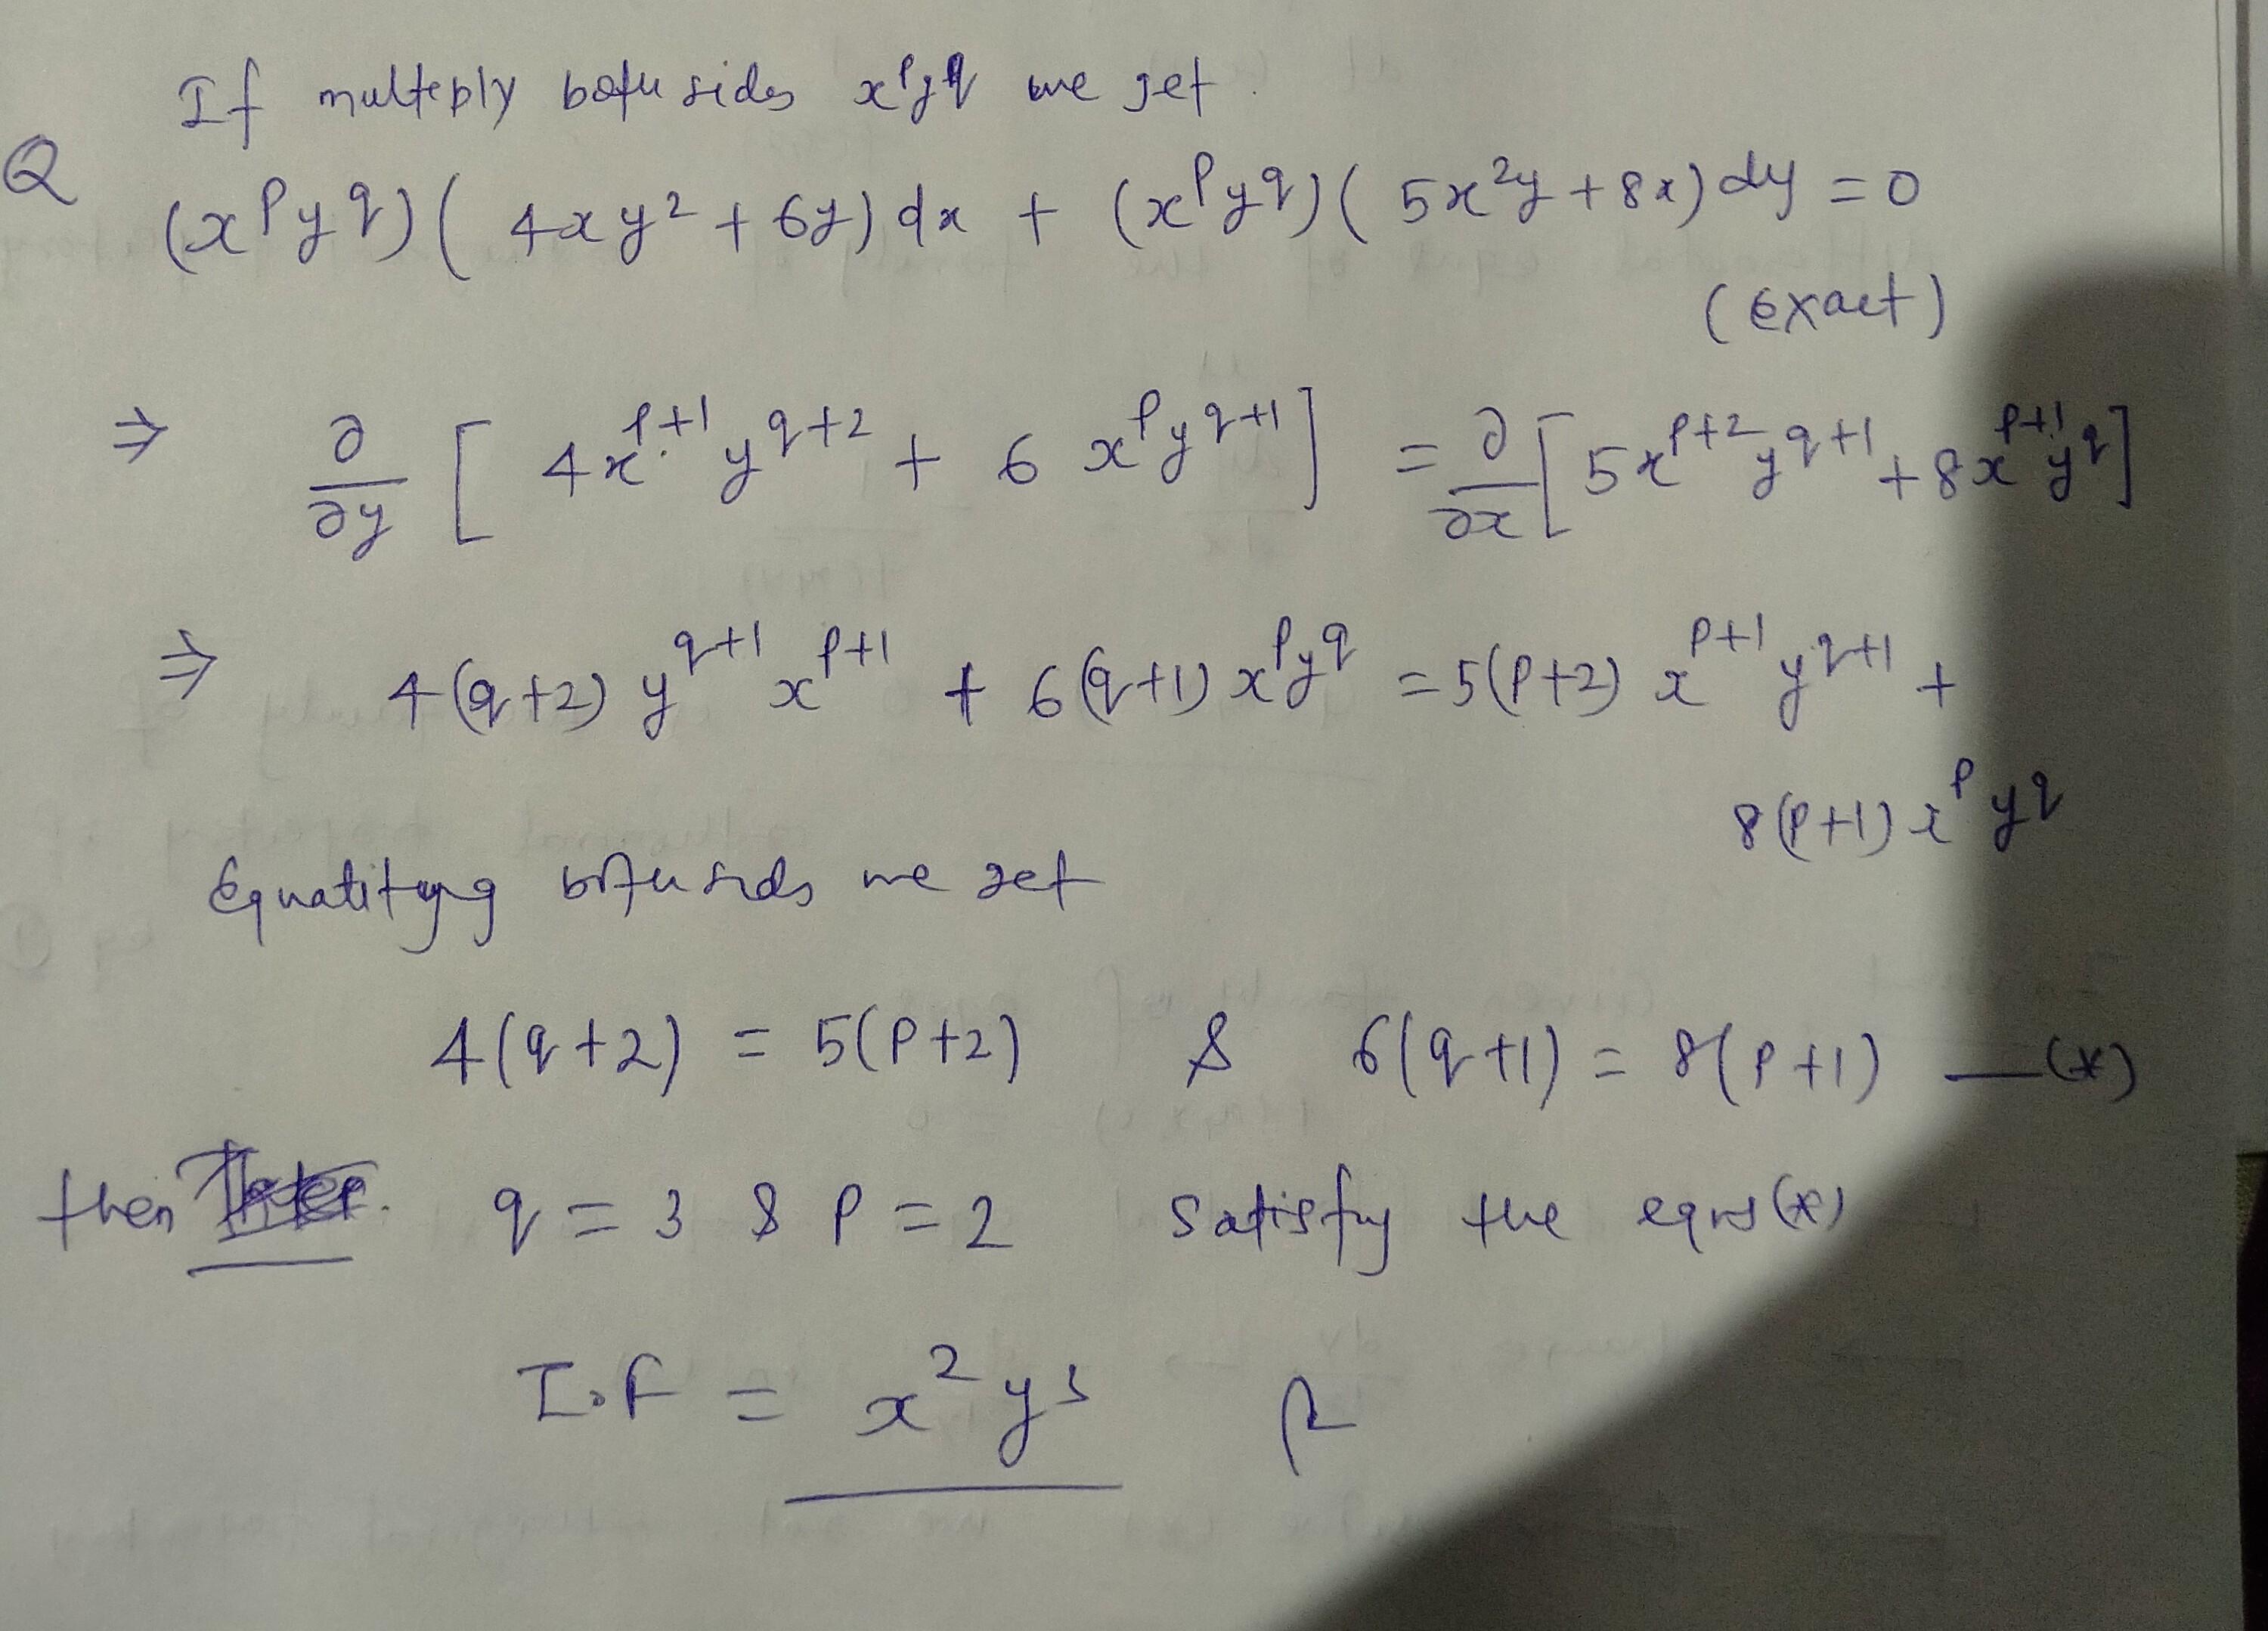 If multeply both sides x^p y^q we get.
Q
(x^p y^q)(4xy² + 6y)dx + (x^p y^q)(5x²y + 8x)dy = 0
(exact)
⇒ ∂/∂y [4x^{p+1} y^{q+2} + 6 x^p y^{q+1}] = ∂/∂x [5x^{p+2} y^{q+1} + 8x^{p+1} y^q]
⇒ 4(q+2) y^{q+1} x^{p+1} + 6(q+1) x^p y^q = 5(p+2) x^{p+1} y^{q+1} +
8(p+1) x^p y^q
both sides we get
4(q+2) = 5(p+2) & 6(q+1) = 8(p+1) —(*)
then q = 3 & p = 2 satisfy the eqns (*)
I.F = x² y³